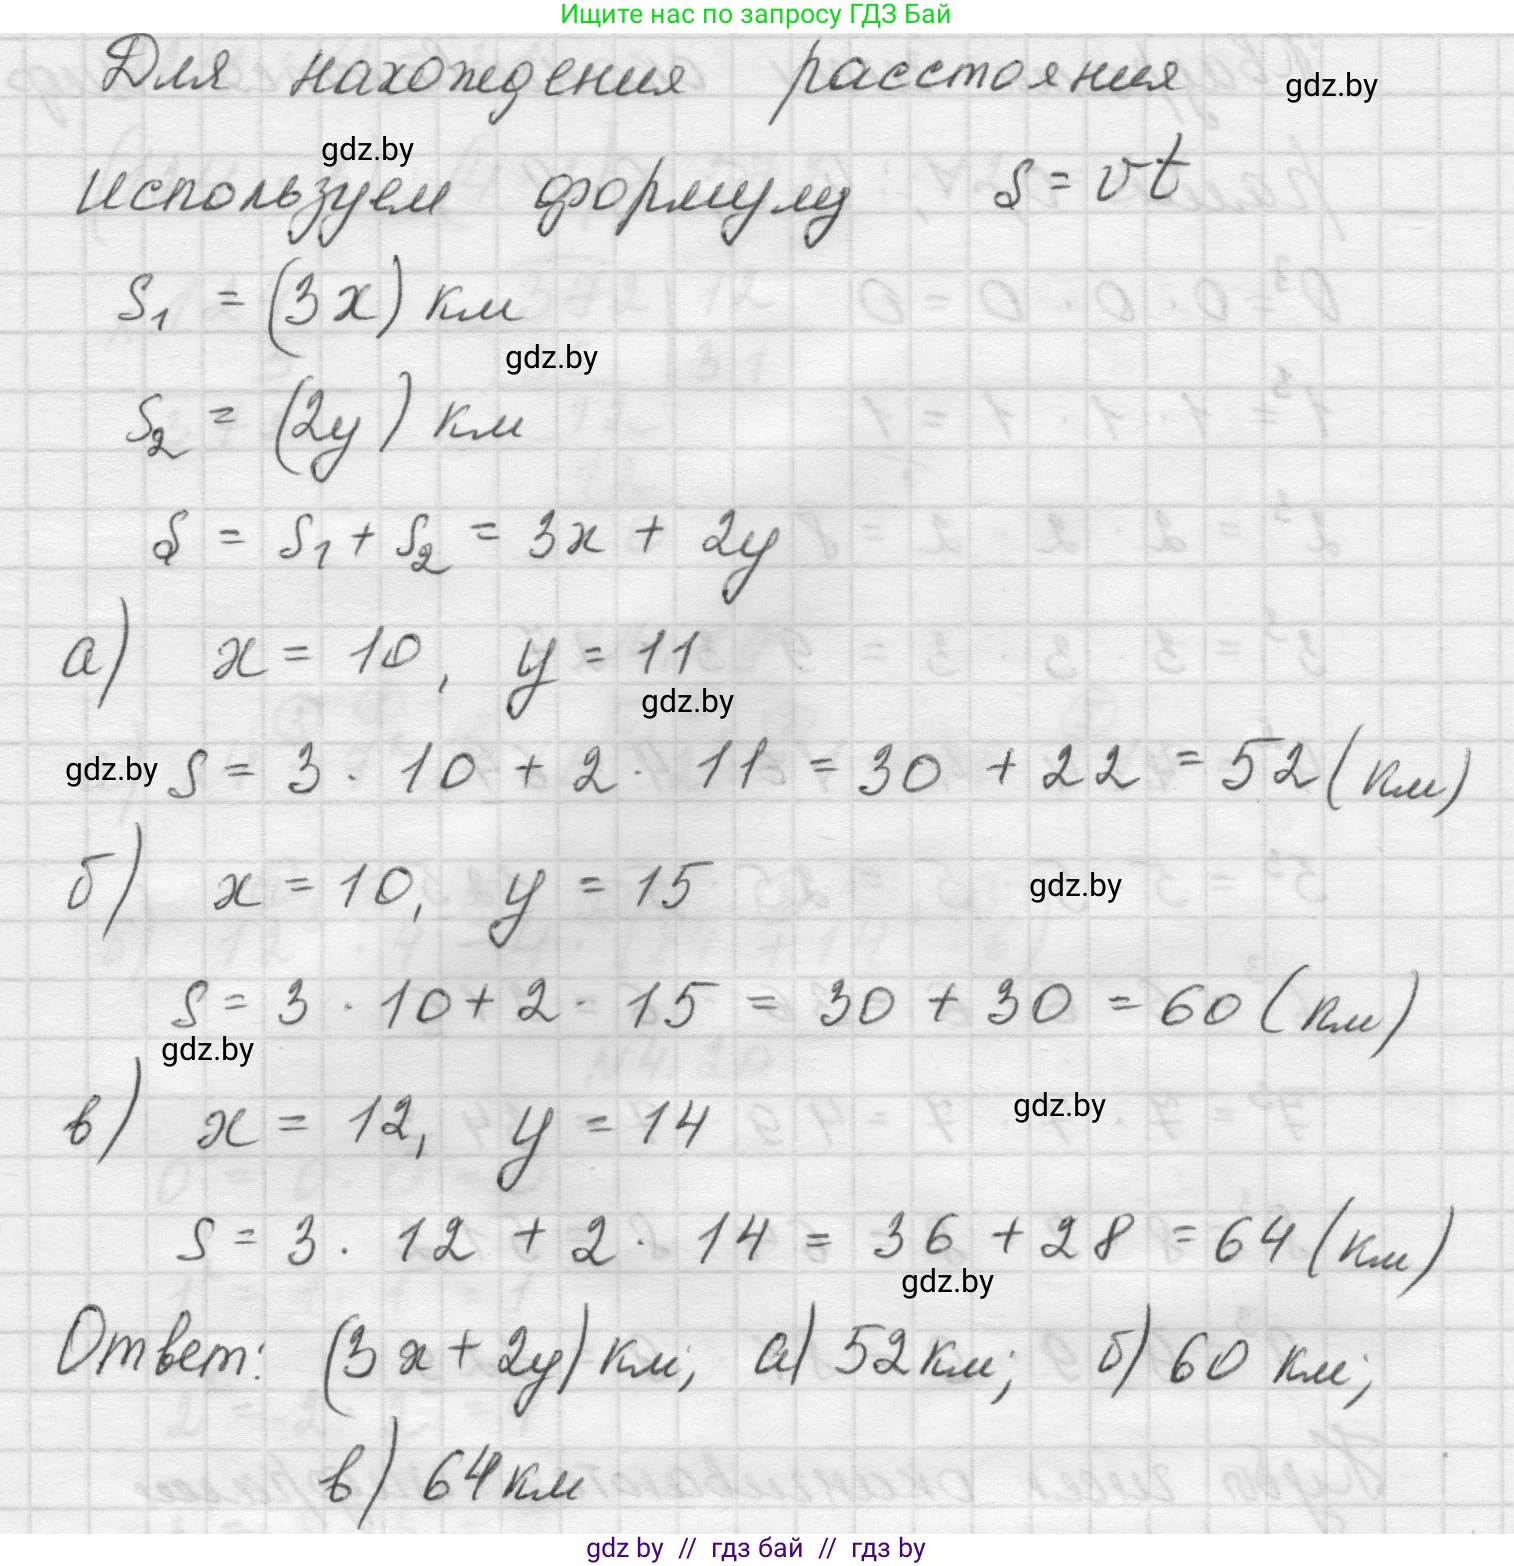 Ищите нас по запросу ГДЗ Бай
Для нахождения расстояния gdz.by
gdz.by
используем формулу s = vt
S₁ = (3x) км
gdz.by
S₂ = (2y) км
S = S₁ + S₂ = 3x + 2y
а) x = 10, y = 11
gdz.by
gdz.by S = 3 · 10 + 2 · 11 = 30 + 22 = 52 (км)
б) x = 10, y = 15 gdz.by
S = 3 · 10 + 2 · 15 = 30 + 30 = 60 (км)
gdz.by
в) x = 12, y = 14 gdz.by
S = 3 · 12 + 2 · 14 = 36 + 28 = 64 (км)
gdz.by
Ответ: (3x + 2y) км; а) 52 км; б) 60 км;
в) 64 км
gdz.by // гдз бай // гдз by